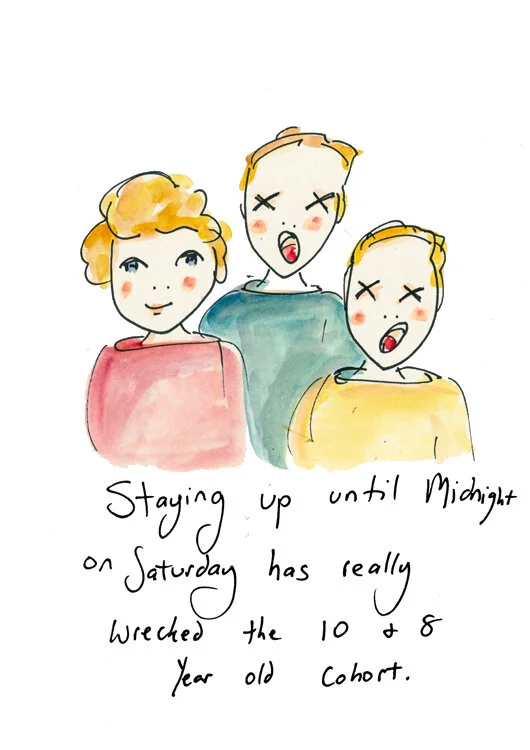 Staying up until Midnight
on Saturday has really
wrecked the 10 & 8
Year old Cohort.